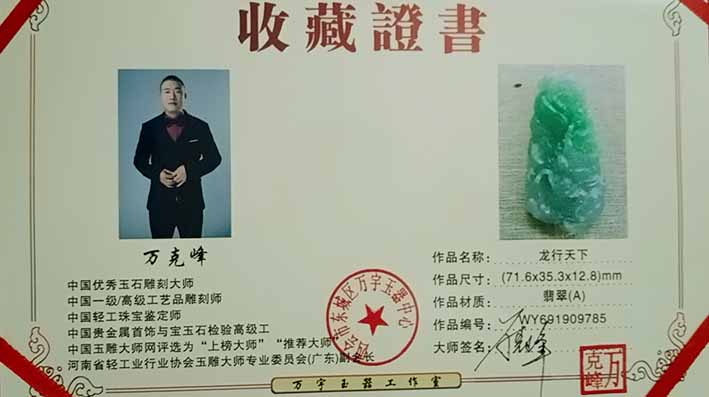 收藏證書
万克峰
中国优秀玉石雕刻大师
中国一级/高级工艺品雕刻师
中国轻工珠宝鉴定师
中国贵金属首饰与宝玉石检验高级工
中国玉雕大师网评选为“上榜大师”“推荐大师”
河南省轻工业行业协会玉雕大师专业委员会(广东)副会长
作品名称: 龙行天下
作品尺寸: (71.6x35.3x12.8)mm
作品材质: 翡翠(A)
作品编号: WY691909785
大师签名:
四会市东城区万宇玉器中心
万克峰
万宇玉器工作室